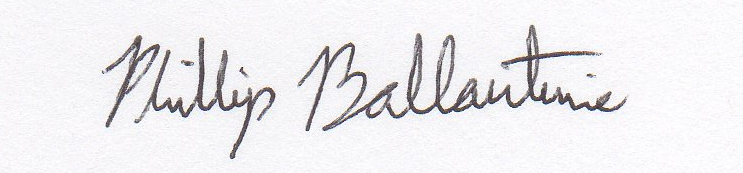 Phillip Ballantine